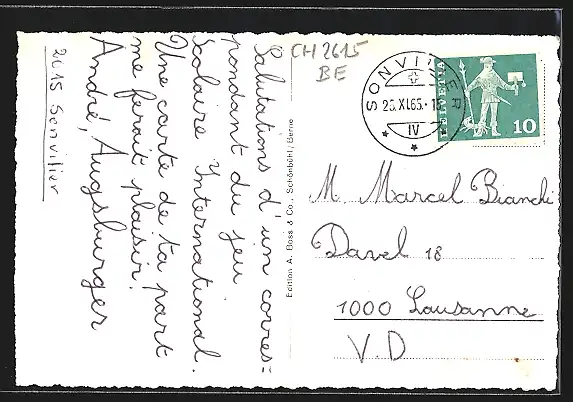 Salutations d'un corres=
pondant du jeu
Scolaire International.
Une carte de ta part
me ferait plaisir!
André, Augsburger
2615 Sonvilier
Edition A. Boss & Co., Schönbühl/Berne
CH 2615
BE
SONVILIER
25.XI.65.-18
IV
HELVETIA
10
M. Marcel Bianchi
Davel 18
1000 Lausanne
V.D